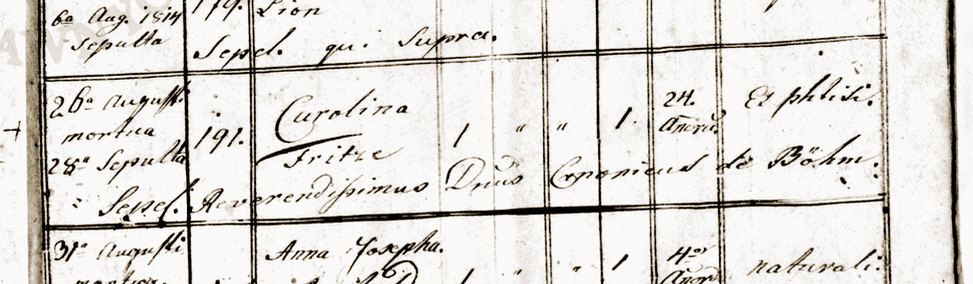 6a Aug. 1814 179. Lion
sepulta Sepel. qui supra.
26a Augusti Carolina 24. Ex phtisi.
mortua 191. 1 " " 1. Annorū
28a Sepulta Fritze
Sepel. Reverendissimus Dn̄us Canonicus de Böhm.
31a Augusti Anna Josepha. 4or naturali.
1 " " 1 Annor